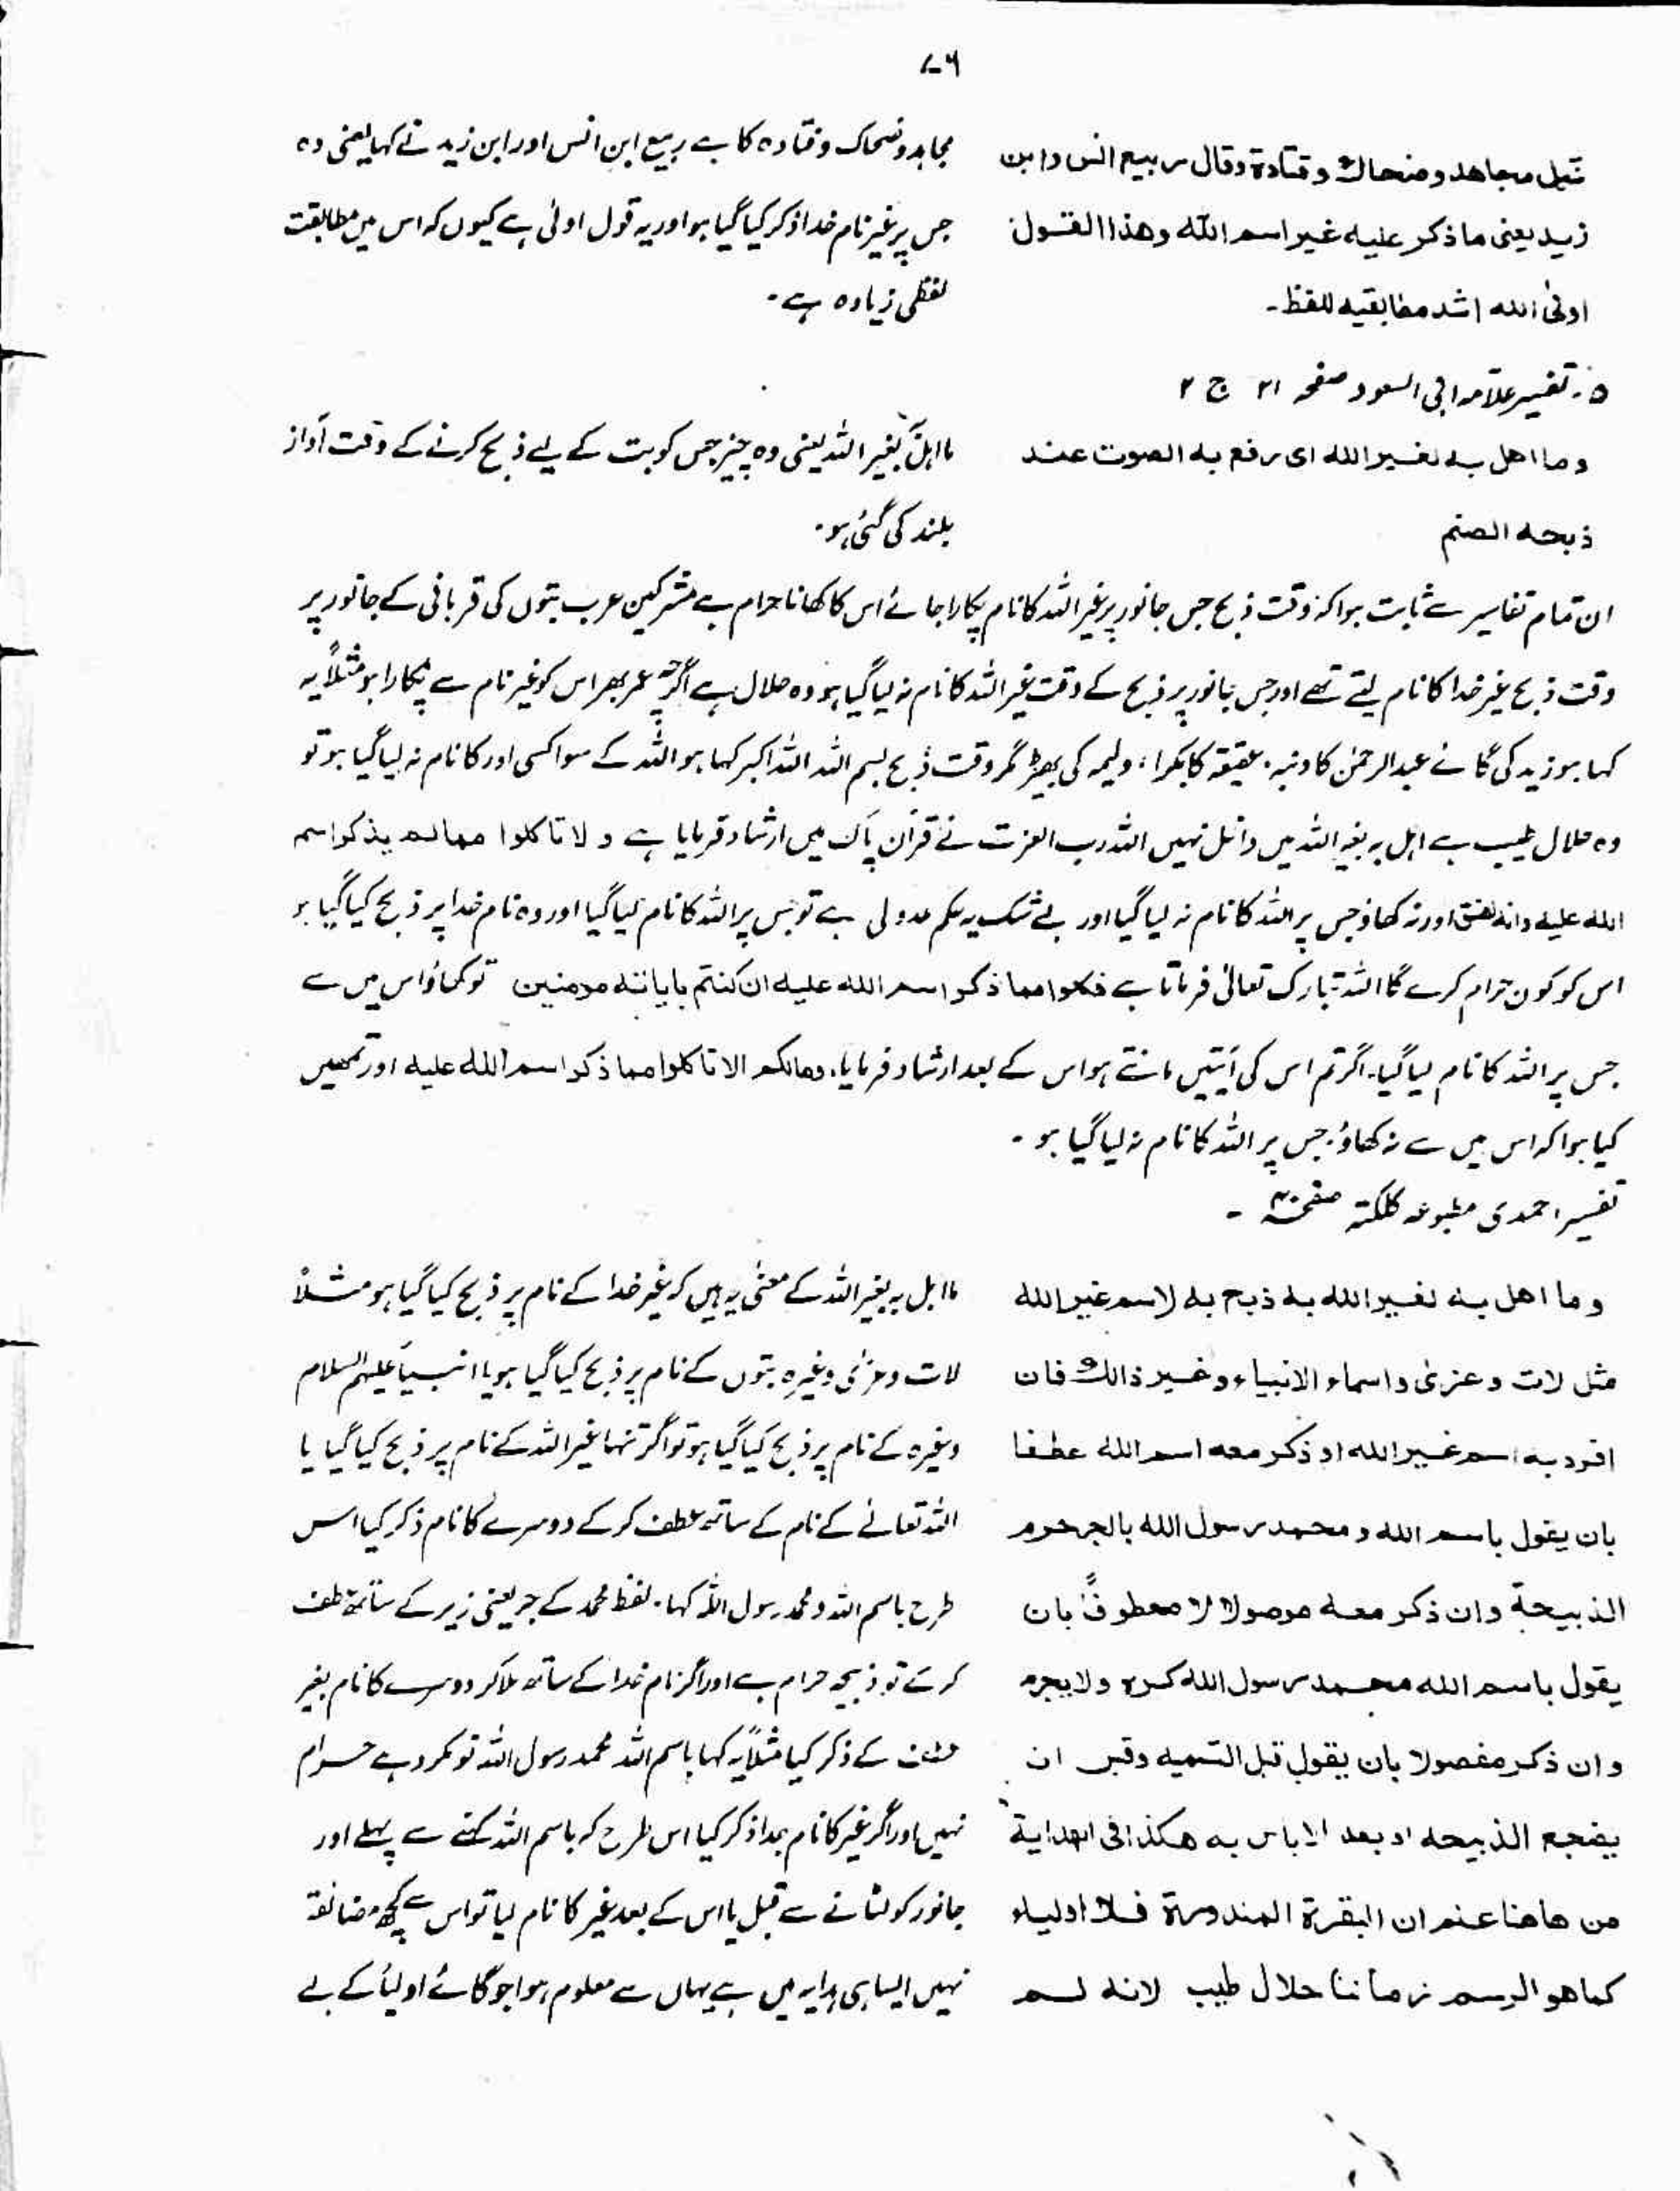 ۷۶
قیل مجاهد وضحاك وقتادة وقال ربیع انس وابن
زید یعنی ما ذکر علیه غیر اسم الله وهذا القول
اولیٰ الله اشد مطابقیه للفظ۔
مجاہد وضحاک وقتادہ کا ہے ربیع ابن انس اور ابن زید نے کہا یعنی وہ
جس پر غیر نام خدا ذکر کیا گیا ہو اور یہ قول اولیٰ ہے کیوں کہ اس میں مطابقت
لفظی زیادہ ہے۔
۵۔ تفسیر علامہ ابی السعود صفحہ ۲۱ ج ۲
وما اهل به لغیر الله ای رفع به الصوت عند
ذبحه الصنم
مااہلّ بغیر اللہ یعنی وہ چیز جس کو بت کے لیے ذبح کرنے کے وقت آواز
بلند کی گئی ہو۔
ان تمام تفاسیر سے ثابت ہوا کہ وقت ذبح جس جانور پر غیر اللہ کا نام پکارا جائے اس کا کھانا حرام ہے مشرکین عرب بتوں کی قربانی کے جانور پر
وقت ذبح غیر خدا کا نام لیتے تھے اور جس جانور پر ذبح کے وقت غیر اللہ کا نام نہ لیا گیا ہو وہ حلال ہے اگرچہ عمر بھر اس کو غیر نام سے پکارا ہو مثلاً یہ
کہا ہو زید کی گائے عبدالرحمٰن کا دنبہ، عقیقہ کا بکرا، ولیمہ کی بھیڑ مگر وقت ذبح بسم اللہ اللہ اکبر کہا ہو اللہ کے سوا کسی اور کا نام نہ لیا گیا ہو تو
وہ حلال طیب ہے اہل بہ بغیر اللہ میں داخل نہیں اللہ رب العزت نے قرآن پاک میں ارشاد فرمایا ہے و لا تاکلوا ممالم یذکر اسم
الله علیه وانه لفسق اور نہ کھاؤ جس پر اللہ کا نام نہ لیا گیا اور بے شک یہ حکم عدولی ہے تو جس پر اللہ کا نام لیا گیا اور وہ نام خدا پر ذبح کیا گیا ہو
اس کو کون حرام کرے گا اللہ تبارک تعالیٰ فرماتا ہے فکلوا مما ذکر اسم الله علیه ان کنتم بایاتنه مومنین تو کھاؤ اس میں سے
جس پر اللہ کا نام لیا گیا۔ اگر تم اس کی آیتیں مانتے ہو اس کے بعد ارشاد فرمایا، ومالکم الا تاکلوا مما ذکر اسم الله علیه اور تمھیں
کیا ہوا کہ اس میں سے نہ کھاؤ جس پر اللہ کا نام نہ لیا گیا ہو۔
تفسیر احمدی مطبوعہ کلکتہ صفحہ ۔
وما اهل به لغیر الله به ذبح به لاسم غیر الله
مثل لات وعزیٰ واسماء الانبیاء وغیر ذالك فان
افرد به اسم غیر الله او ذکر معه اسم الله عطفا
بان یقول باسم الله و محمد رسول الله بالجر حرم
الذبیحة وان ذکر معه موصولا لا معطوفاً بان
یقول باسم الله محمد رسول الله کره ولا یحرم
وان ذکر مفصولا بان یقول قبل التسمیه وقبل ان
یضجع الذبیحه او بعد الا باس به هکذا فی الهدایة
من هاهنا عنم ان البقرة المنذورة فلا اولیاء
کما هو الرسم زماننا حلال طیب لانه لم
مااہل بہ بغیر اللہ کے معنی یہ ہیں کہ غیر خدا کے نام پر ذبح کیا گیا ہو مثلاً
لات وعزیٰ وغیرہ بتوں کے نام پر ذبح کیا گیا ہو یا انبیأ علیہم السلام
وغیرہ کے نام پر ذبح کیا گیا ہو تو اگر تنہا غیر اللہ کے نام پر ذبح کیا گیا یا
اللہ تعالےٰ کے نام کے ساتھ عطف کر کے دوسرے کا نام ذکر کیا اس
طرح باسم اللہ ومحمد رسول اللہ کہا۔ لفظ محمد کے جر یعنی زیر کے ساتھ عطف
کر تے تو ذبیحہ حرام ہے اور اگر نام خدا کے ساتھ ملا کر دوسرے کا نام بغیر
عطف کے ذکر کیا مثلاً یہ کہا باسم اللہ محمد رسول اللہ تو مکروہ ہے حرام
نہیں اور اگر غیر کا نام جدا ذکر کیا اس طرح کہ باسم اللہ کہنے سے پہلے اور
جانور کو لٹانے سے قبل یا اس کے بعد غیر کا نام لیا تو اس سے کچھ مضائقہ
نہیں ایسا ہی ہدایہ میں ہے یہاں سے معلوم ہوا جو گائے اولیأ کے لے